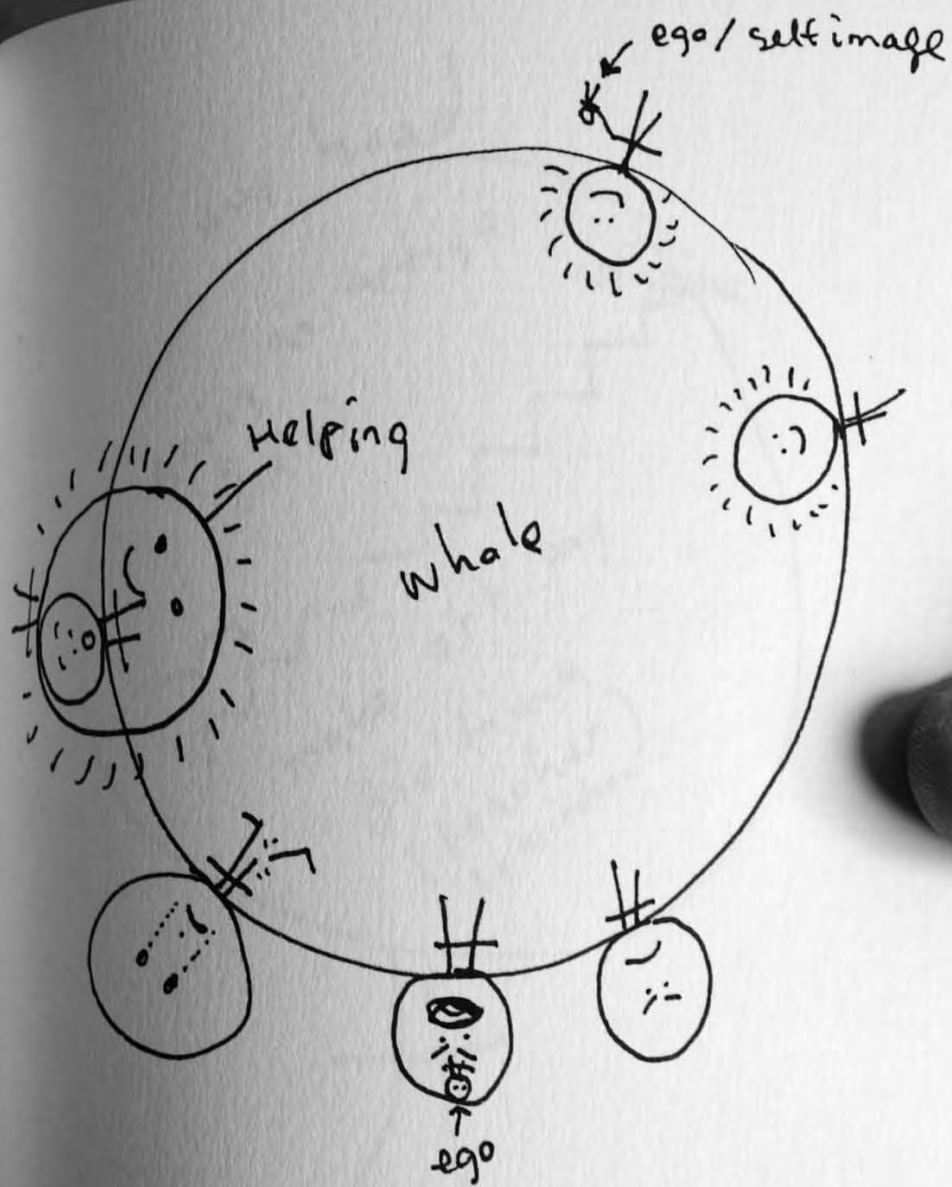 ego/self image
Helping
whale
ego